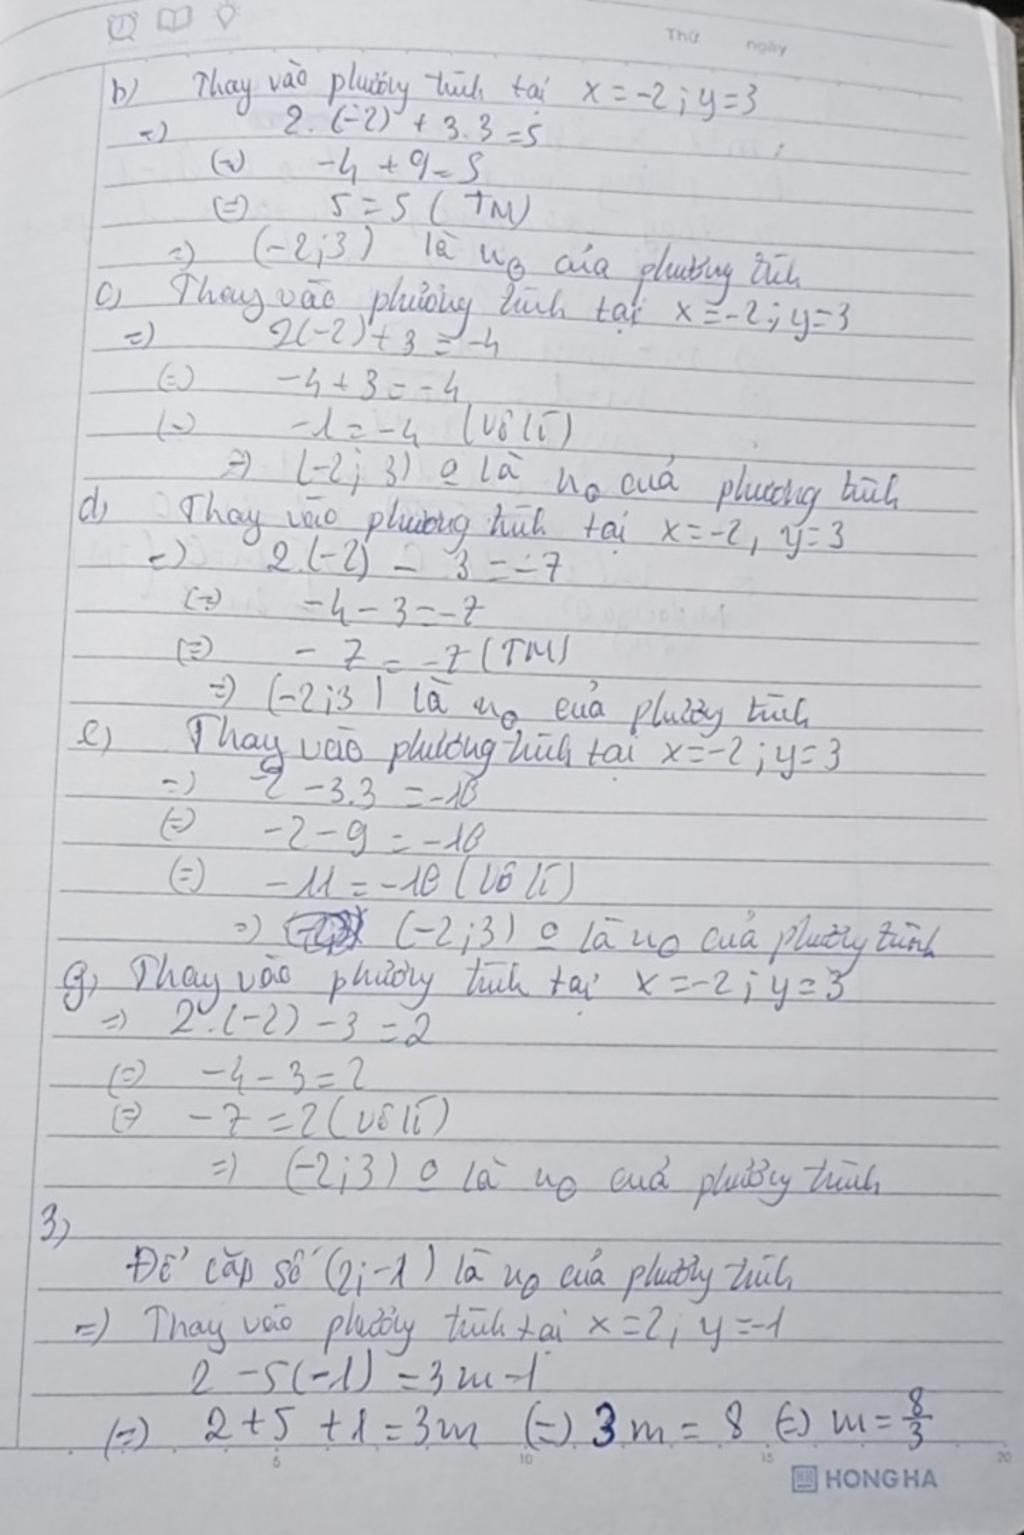 Thứ ngày
b) Thay vào phương trình tại x = -2 ; y = 3
=) 2.(-2) + 3.3 = 5
(=) -4 + 9 = 5
(=) 5 = 5 (TM)
=) (-2;3) là no của phương trình
c) Thay vào phương trình tại x = -2 ; y = 3
=) 2(-2) + 3 = -4
(=) -4 + 3 = -4
(=) -1 = -4 (vô lí)
=) (-2; 3) o là no của phương trình
d) Thay vào phương trình tại x = -2, y = 3
=) 2.(-2) - 3 = -7
(=) -4 - 3 = -7
(=) - 7 = -7 (TM)
=) (-2;3) là no của phương trình
e) Thay vào phương trình tại x = -2 ; y = 3
=) -2 - 3.3 = -10
(=) -2 - 9 = -10
(=) -11 = -10 (vô lí)
=) (-2;3) o là no của phương trình
g) Thay vào phương trình tại x = -2 ; y = 3
=) 2.(-2) - 3 = 2
(=) -4 - 3 = 2
(=) -7 = 2 (vô lí)
=) (-2;3) o là no của phương trình
3)
Để cặp số (2;-1) là no của phương trình
=) Thay vào phương trình tại x = 2; y = -1
2 - 5(-1) = 3m - 1
(=) 2 + 5 + 1 = 3m (=) 3m = 8 (=) m = 8/3
5 10 15 20
HONG HA